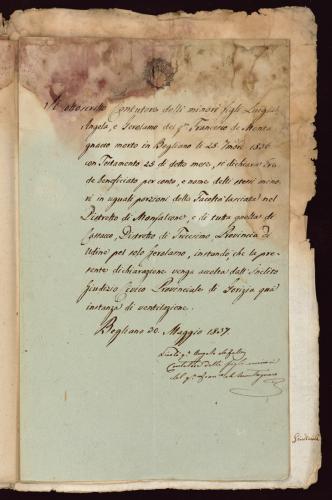 Il sottoscritto Contutore delli minori figli Luigia,
Angela, e Gerolamo del q.m Francesco de Monta
gnacco morto in Begliano li 25
con Testamento 23 di detto mese, si dichiara Ere
de beneficiato per conto, e nome delli stessi mino
ri in uguali porzioni della Facoltà lasciata nel
Distretto di Monfalcone, e di tutta quella di
Distretto di Tricesimo, Provincia di
Udine pel solo Gerolamo, instando, che la pre
sente dichiarazione venga accolta dall'Inclito
Giudizio Civico Provinciale di Gorizia quà
instanza di ventilazione.
Begliano 30. Maggio 1837.
q.m Angelo
Contutore delli figli minori
del q.m Fran.co de Montagnacco